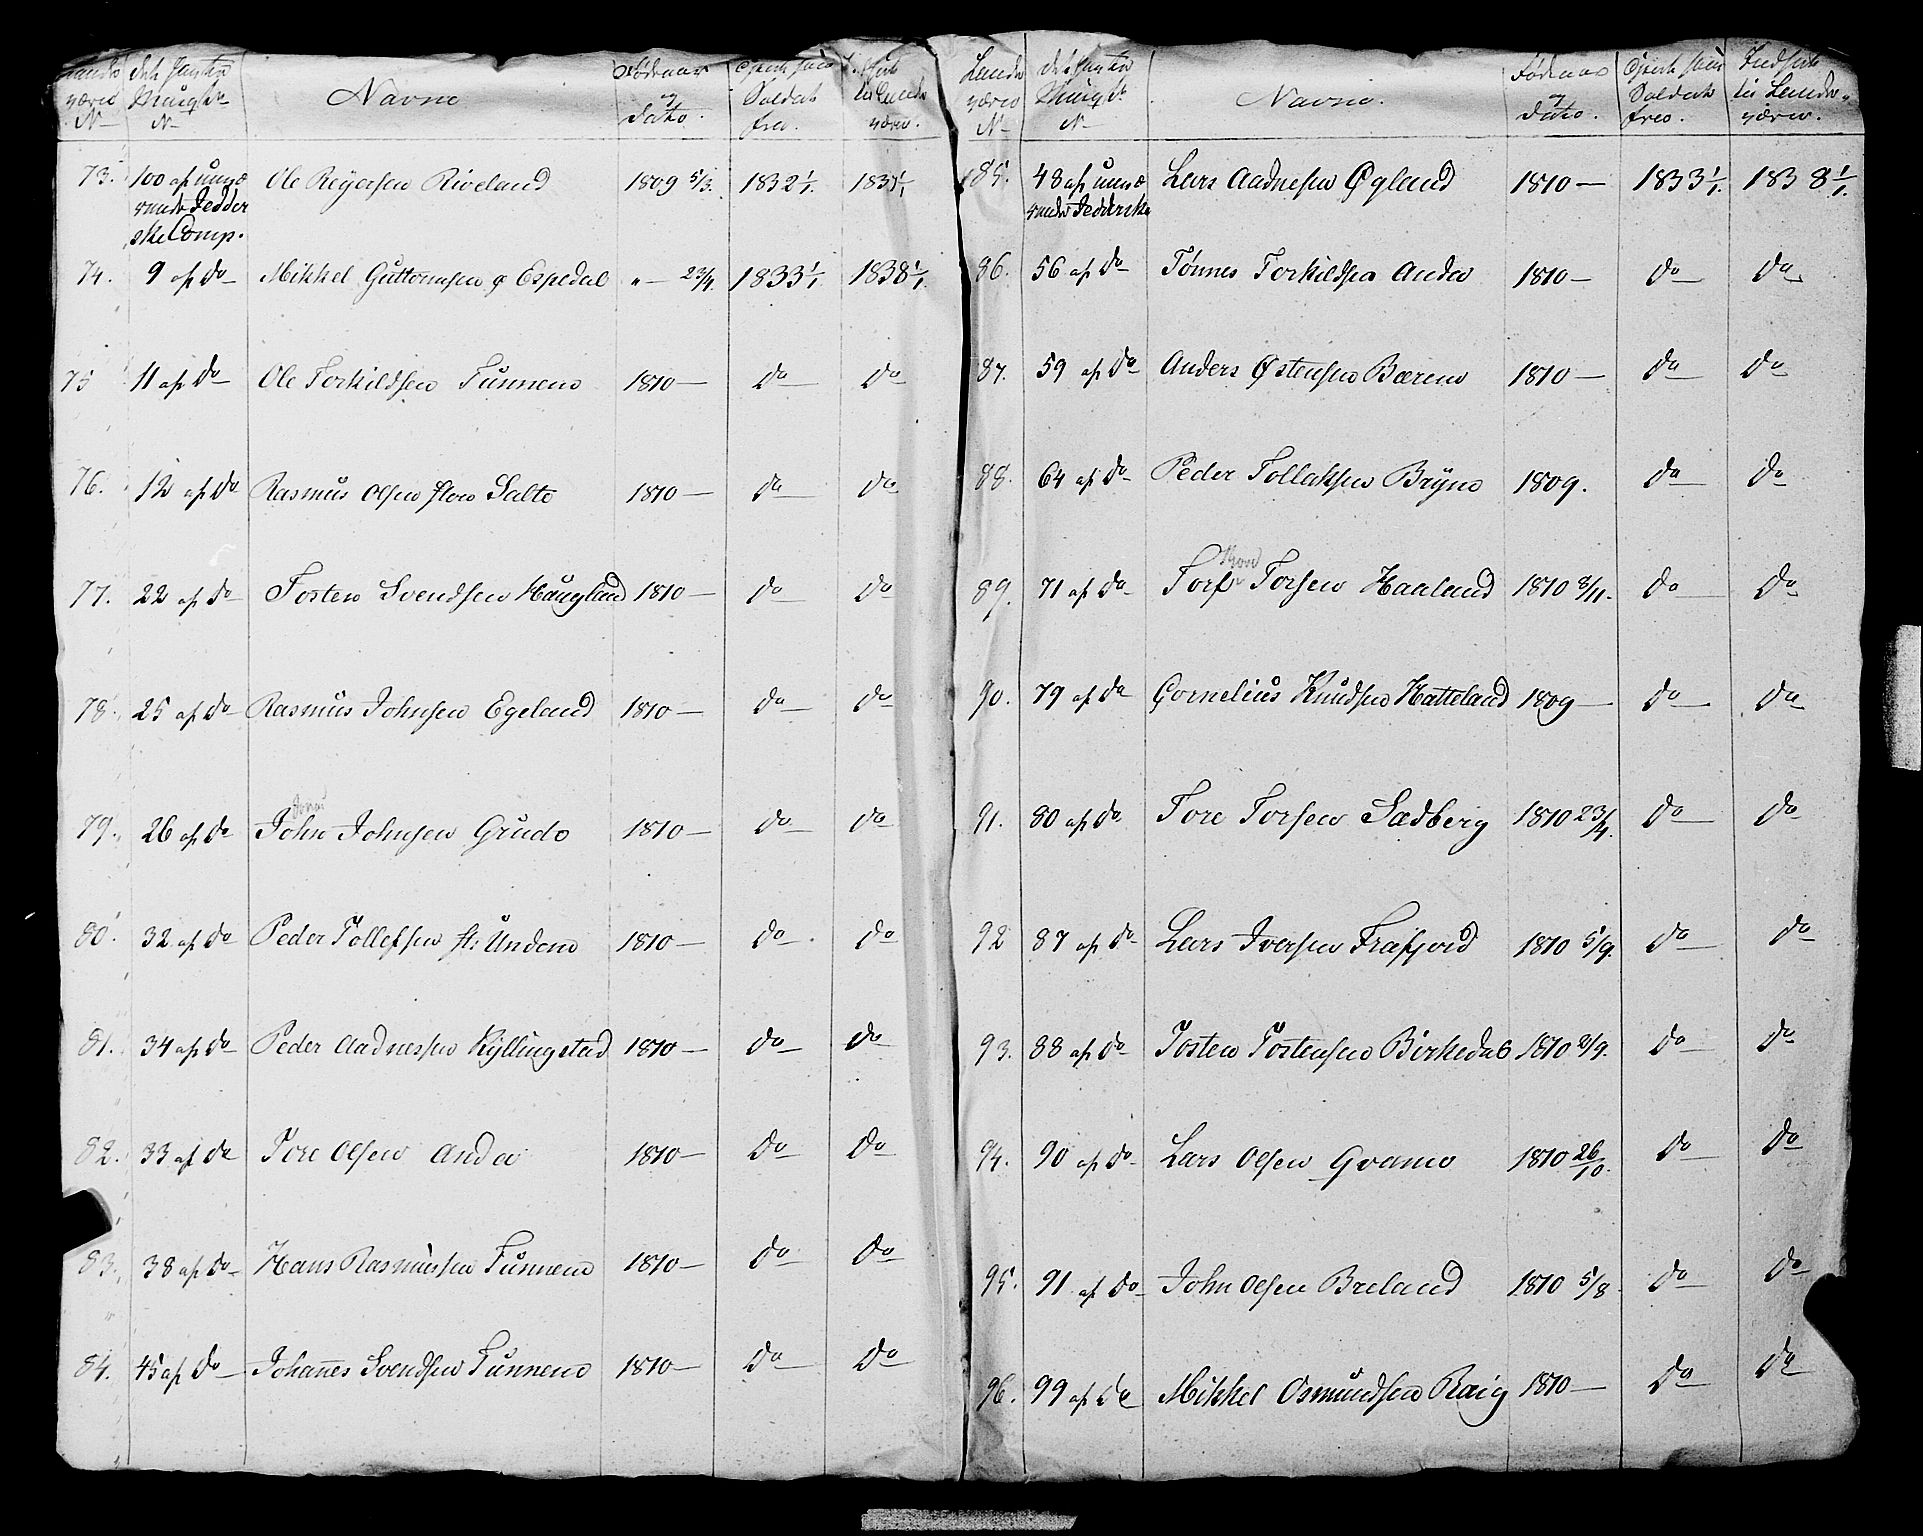 værns
No
No
Navne
Fødeaar
og
Dato.
Soldat
fra.
værn.
73. 100 af nuvæ Ole Reyersen Riveland 1809 5/3. 1832 1/1.
rende Jedder
ske Comp.
74. 9 af do Mikkel Guttormsen Espedal " — 23/4. 1833 1/1 1838 1/1.
75 11 af do Ole Torkildsen Tunnem 1810 — do do
76. 12 af do Rasmus Olsen Salte 1810 — do do
77. 22 af do Tosten Svendsen Haugland 1810 — do do
78. 25 af do Rasmus Johnsen Egeland 1810 — do do
79. 26 af do John Johnsen Grude 1810 — do do
80. 32 af do Peder Tollefsen Undem 1810 — do do
81. 34 af do Peder Aadnessen Kyllingstad 1810 — do do
82. 33 af do Tore Olsen Anda 1810 — do do
83. 38 af do Hans Rasmussen Tunnem 1810 — do do
84. 45 af do Johannes Svendsen Tunnem 1810 — do do
Lande
værns
No
No
Navne.
Fødeaar
og
Dato.
Soldat
fra.
til Lande-
værn.
85. 48 af nuvæ Lars Aadnesen Øgland 1810 — 1833 1/1. 1838 1/1.
rende Jedderske
86. 56 af do Tønnes Torkildsen Anda 1810 — do do
87. 59 af do Anders Østensen Bærem 1810 — do do
88. 64 af do Peder Tollaksen Bryne 1809. do do
89. 71 af do Torsen Haaland 1810 8/11. do do
90. 79 af do Cornelius Knudsen Hatteland 1809 — do do
91. 80 af do Tore Torsen Sædberg 1810 23/4. do do
92 87 af do Lars Iversen Frafjord 1810 5/9. do do
93. 88 af do Tosten Tostensen Birkedal 1810 2/9. do do
94. 90 af do Lars Olsen Qvame 1810 26/10. do do
95. 91 af do John Olsen Breland 1810 5/8 do do
96. 99 af do Mikkel Osmundsen Raig 1810 — do do